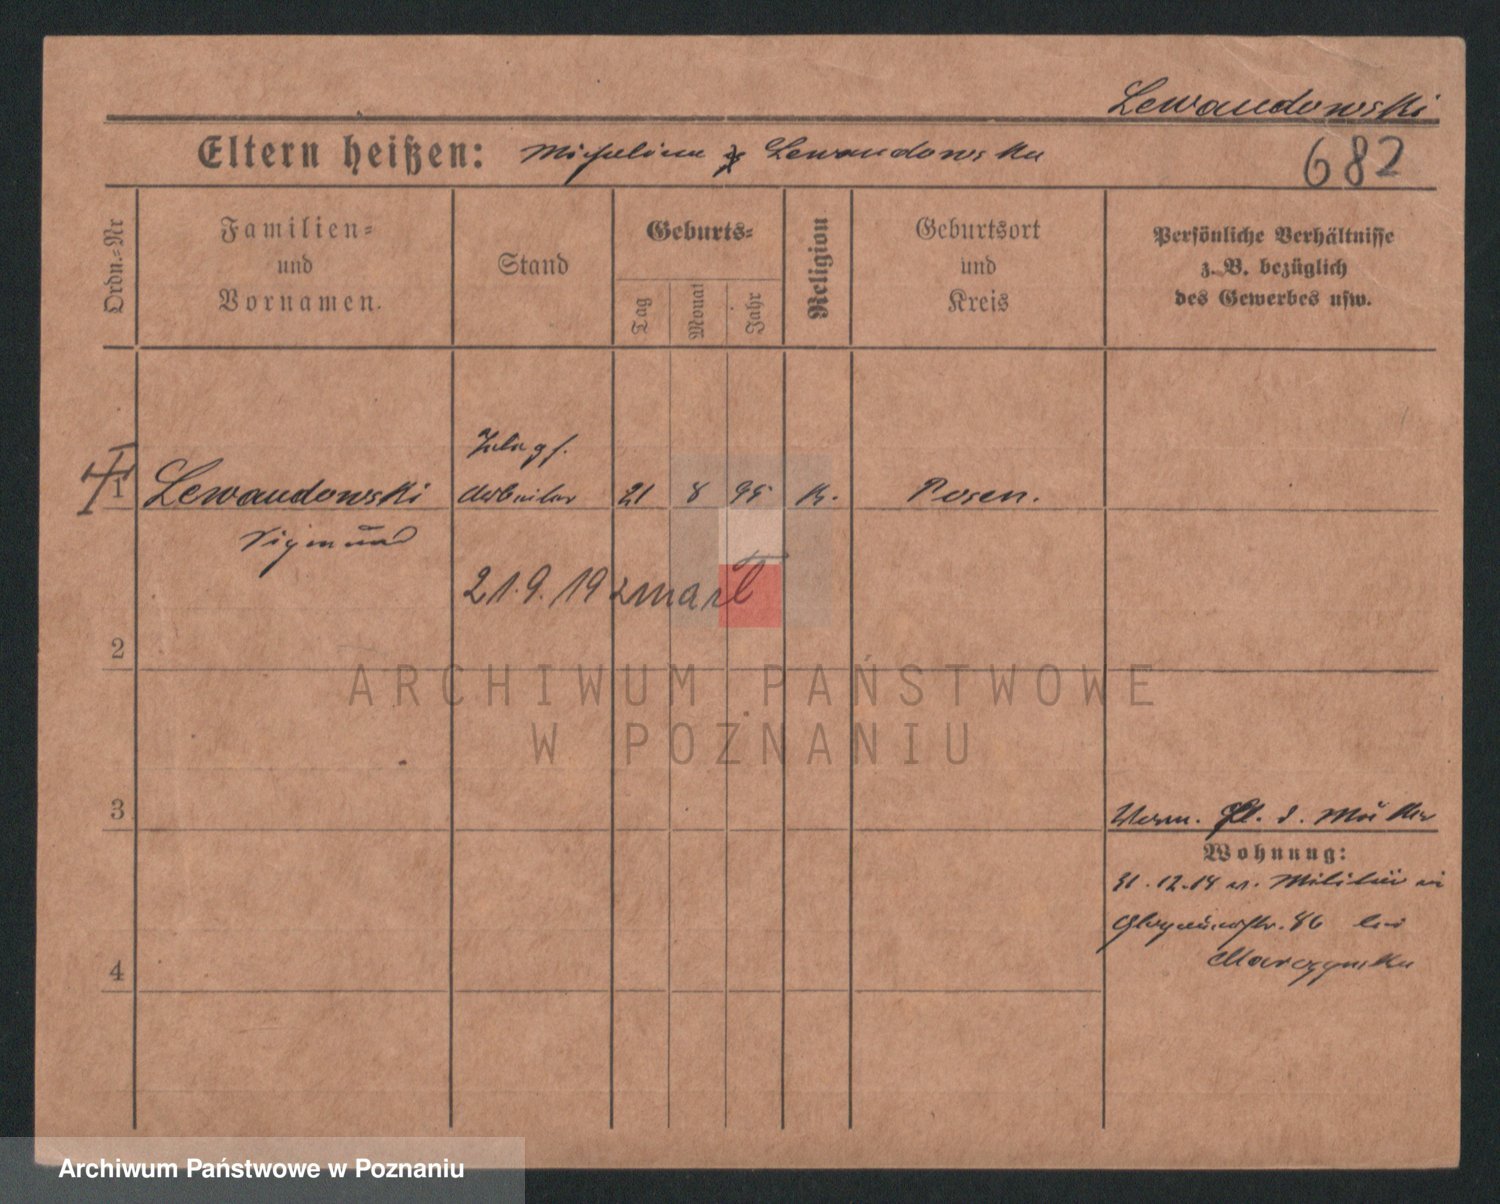 Lewandowski
Eltern heißen: Michalina Lewandowska
682
Ordn.-Nr
Familien-
und
Vornamen.
Stand
Geburts-
Tag
Monat
Jahr
Religion
Geburtsort
und
Kreis
Persönliche Verhältnisse
z. B. bezüglich
des Gewerbes usw.
1
Lewandowski
Arbeiter
21 8 95 k. Posen.
Sigmund
21.9.19 zmarł
2
3
d. Mutter
Wohnung:
31.12.14 v. Militär in
86 bei
4
ARCHIWUM PAŃSTWOWE
W POZNANIU
Archiwum Państwowe w Poznaniu